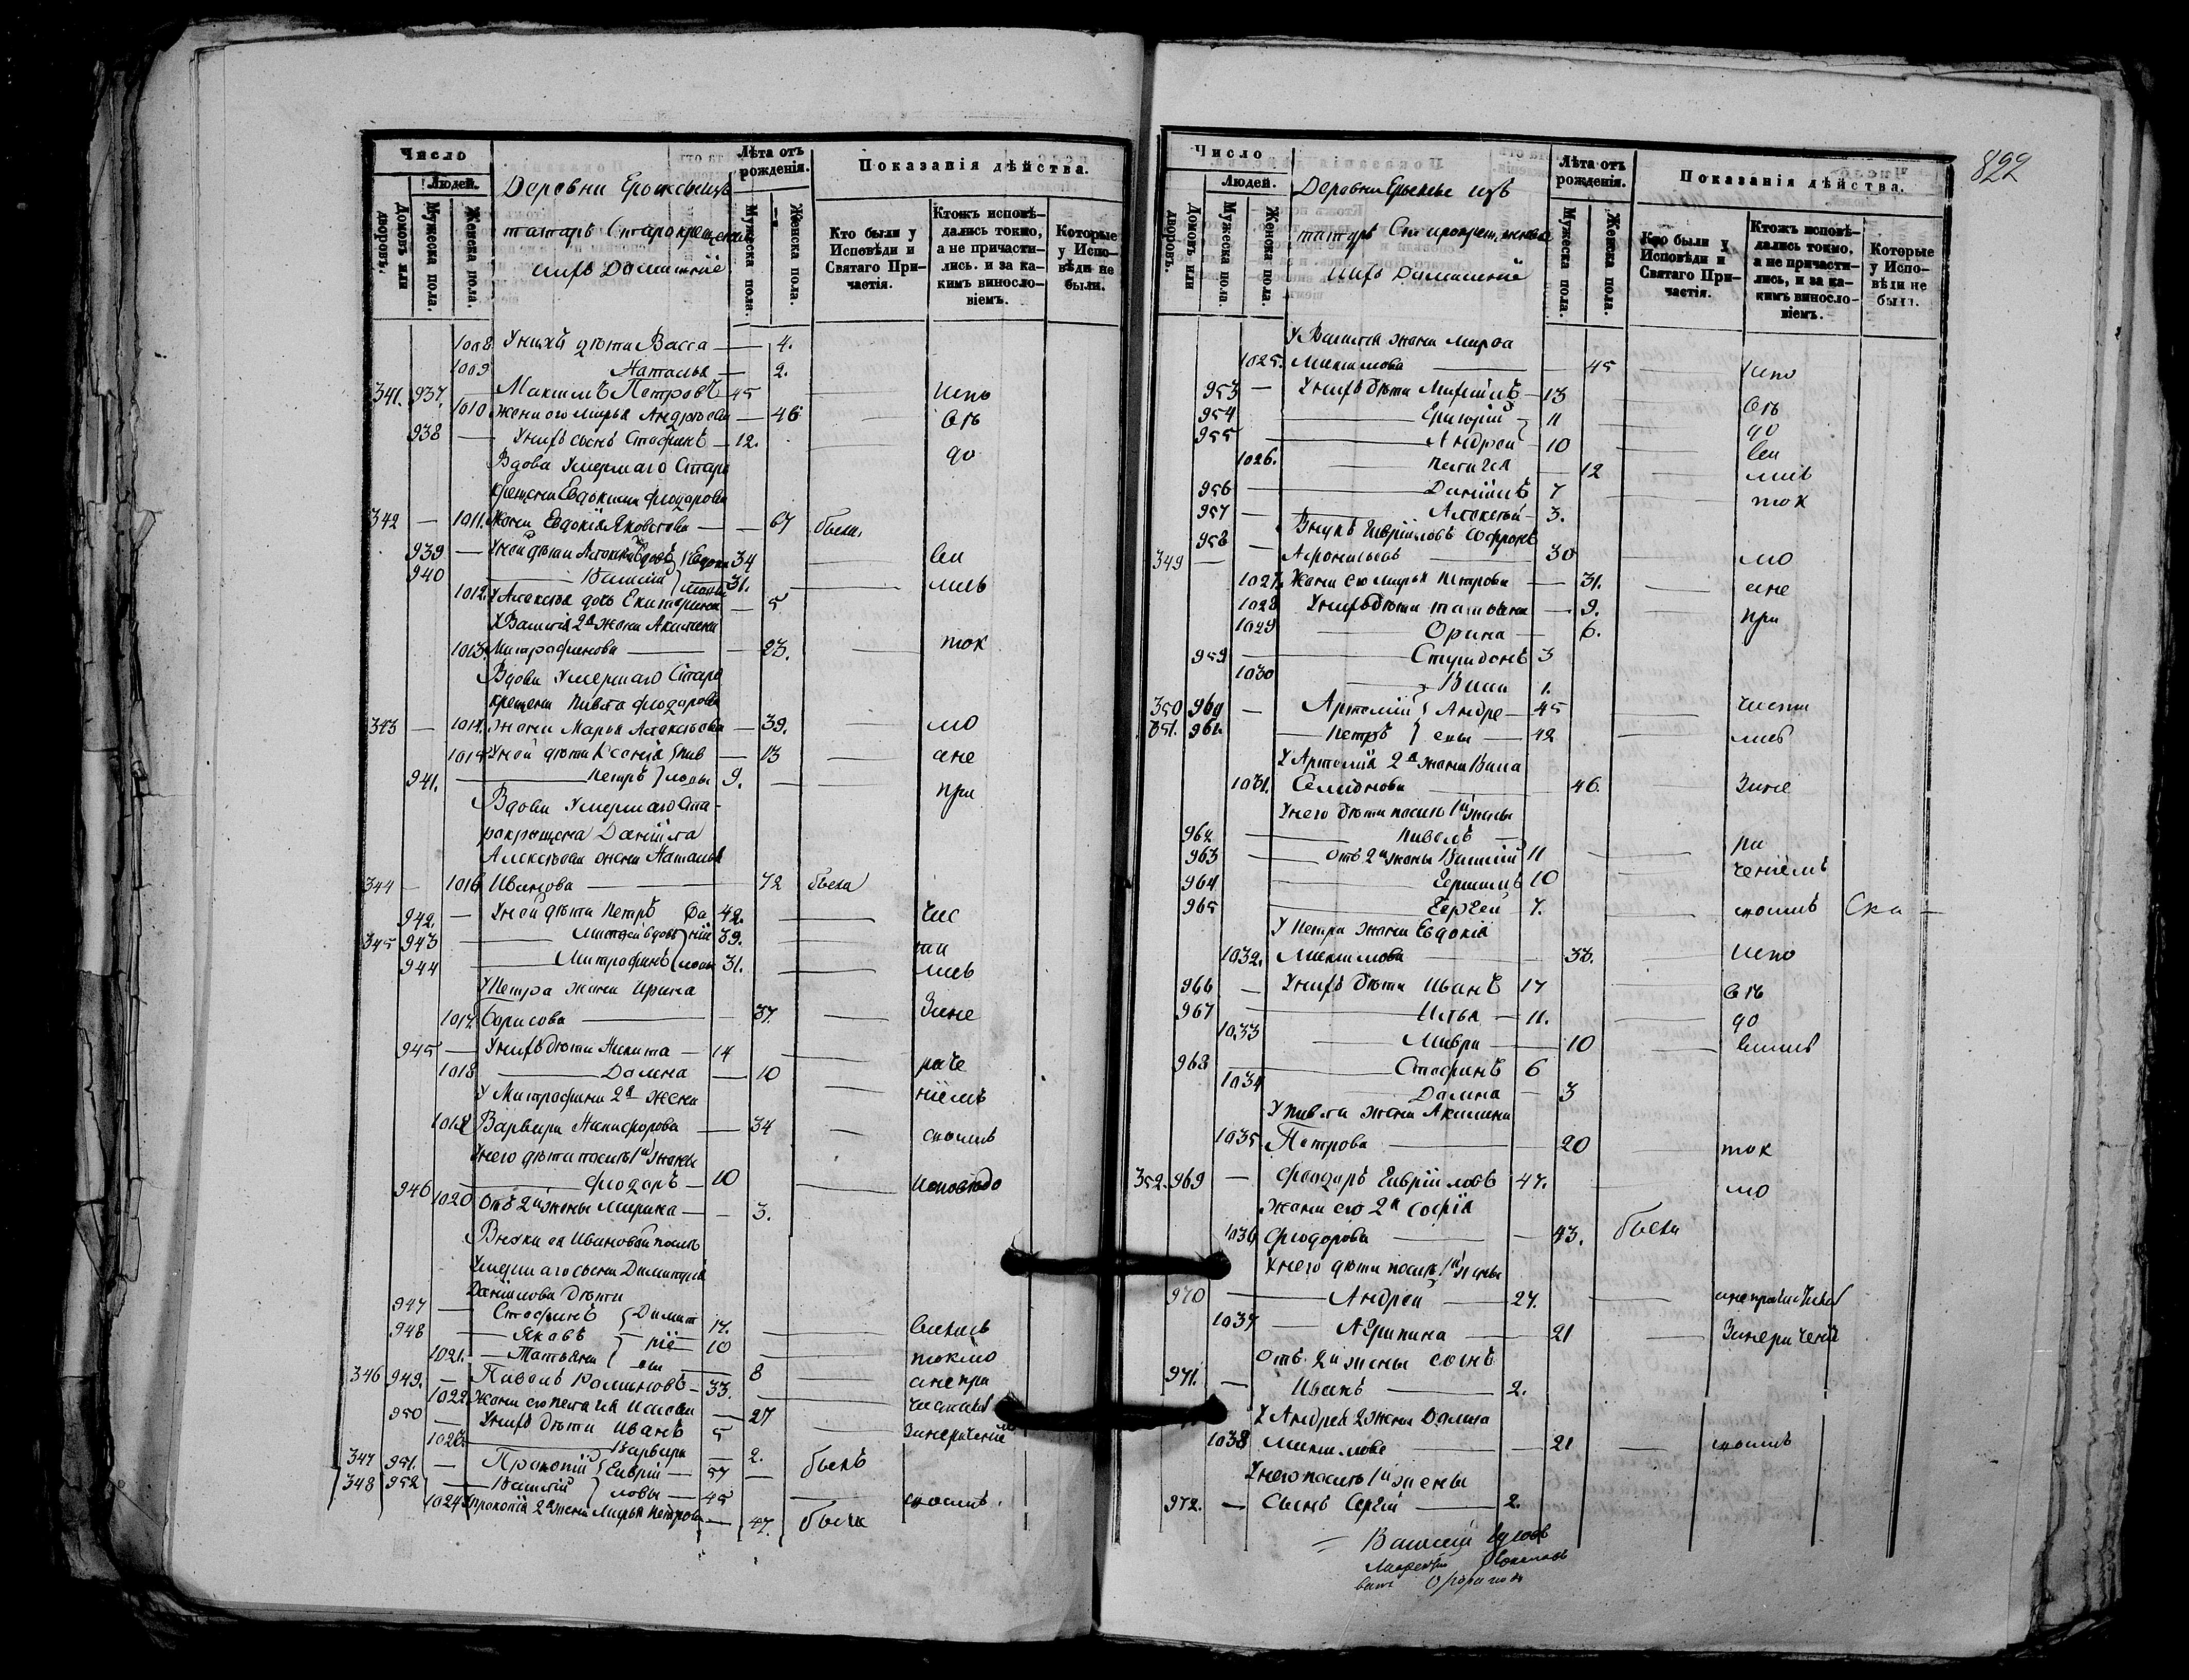 Число
Людей.
Домовъ или дворовъ.
Мужеска пола.
Женска пола.
Деревни
татаръ Старокрещены
нихъ Домашніе
Лѣта отъ рожденія.
Мужеска пола.
Женска пола.
Показанія дѣйства.
Кто были у Исповѣди и Святаго Причастія.
Ктожъ исповѣдались токмо, а не причастились. и за какимъ винословіемъ.
Которые у Исповѣди не были.
1008. У нихъ дѣти Васса — 4.
1009 Наталья — 2.
341. 937. Максимъ Петровъ 45 испо
1010 жена его Марья Андрѣева — 46 вѣ
938 — У нихъ сынъ Стефанъ — 12. до
Вдова умершаго Старо
крещена Евдокима Феодорова
342 — 1011. жена Евдокія Яковлева — 67 была,
939 — У ней дѣти Алексѣй вдовъ Евдоки 34 ва
940 Василій мовы 31. лись
1012. У Алексѣя дочь Екатерина — 5
У Василія 2я жена Акилина
1013. Митрофанова — 23. ток
Вдова умершаго Старо
крещена Павла Феодорова
343 — 1014. жена Марья Алексѣева — 39. мо
1015 У ней дѣти Ксенія Пав — 13 ане
941. Петръ ловы 9. при
Вдова умершаго Ста-
рокрещена Даніила
Алексѣева жена Наталья
344 — 1016 Иванова — 72 была
942. — У ней дѣти Петръ Да 42. час
345 943 вдовъ ніи 39. ти
944 Митрофанъ ловы 31. лись
У Петра жена Ирина
1017. Борисова — 37. Зане
945 — У нихъ дѣти Никита — 14 раче
1018 Домна — 10 ніемъ
У Митрофана 2я жена
Варвара Никифорова — 34 своимъ
У него дѣти послѣ 1й жены
946 Феодоръ — 10 исповѣдо
1020 Отъ 2й жены Марина — 3.
Внуки ея Ивановой послѣ
умершаго сына Димитрія
Даніилова дѣти
947 — Стефанъ Димит 17. вались
948 — Яковъ ріе 10 токмо
1021. — Татьяна вы 8 ане при
346 949. — Павелъ 33. частил
1022 жена его Пелагея — 27 Занераченіе
950 — У нихъ дѣти Иванъ 5
1023. Варвара — 2.
347 951. — Прокопій Гаврій — 57 — былъ
348 952 — Василій ловы — 45 своимъ.
1024 У Прокопія 2я жена Марья Петрова — 47. была
822
Число
Людей.
Домовъ или дворовъ.
Мужеска пола.
Женска пола.
Деревни изъ
татаръ Старокрещенова
нихъ Домашніе
Лѣта отъ рожденія.
Мужеска пола.
Женска пола.
Показанія дѣйства.
Кто были у Исповѣди и Святаго Причастія.
Ктожъ исповѣдались токмо, а не причастились, и за какимъ винословіемъ.
Которые у Исповѣди не были.
У Василія жена Марѳа
1025. Максимова — 45 испо
953 — У нихъ дѣти — 13 вѣ
954 Григорій 11 до
955 Андрей — 10 ва
1026. Пелагея — 12 лись
956 Даніилъ 7 ток
957 — Алексѣй — 3.
958 — Внукъ Гавріиловъ Софронъ
349 — 30 мо
1027. Жена его Марья Петрова — 31. ане
1028 У нихъ дѣти Татьяна — 9. при
1029 Орина — 6.
959 Спиридонъ 3
1030 Васса 1.
350 960 — Артемій Андре — 45 части
351. 961. — Петръ евы — 42 лись
У Артемія 2я жена Васса
1031. Семенова 46. Зане
У него дѣти послѣ 1й жены
962 Павелъ — ра
963 отъ 2й жены Василій 11 ченіемъ
964 Герасимъ 10
965 Сергей 7. своимъ
У Петра жена Евдокія
1032. Максимова — 33. испо
966 — У нихъ дѣти Иванъ 17 вѣ
967 Илья — 11. до
1033 Мавра — 10 вались
968 Стефанъ 6
1034 Домна — 3
У Павла жена Акилина
1035 Петрова — 20 ток
352. 969 — Феодоръ Гавріиловъ 47. мо
жена его 2я Софія
1036 Феодорова — 43. была
У него дѣти послѣ 1й жены
970 — Андрей — 27.
1037 — Агрипина — 21 Занераченіе
отъ 2й жены сынъ
971. — Иванъ — 2.
У Андрея 2 жена Домна
1038 Максимова — 21 своимъ
У него послѣ 1й жены
972. — сынъ Сергій — 2.
= Василій